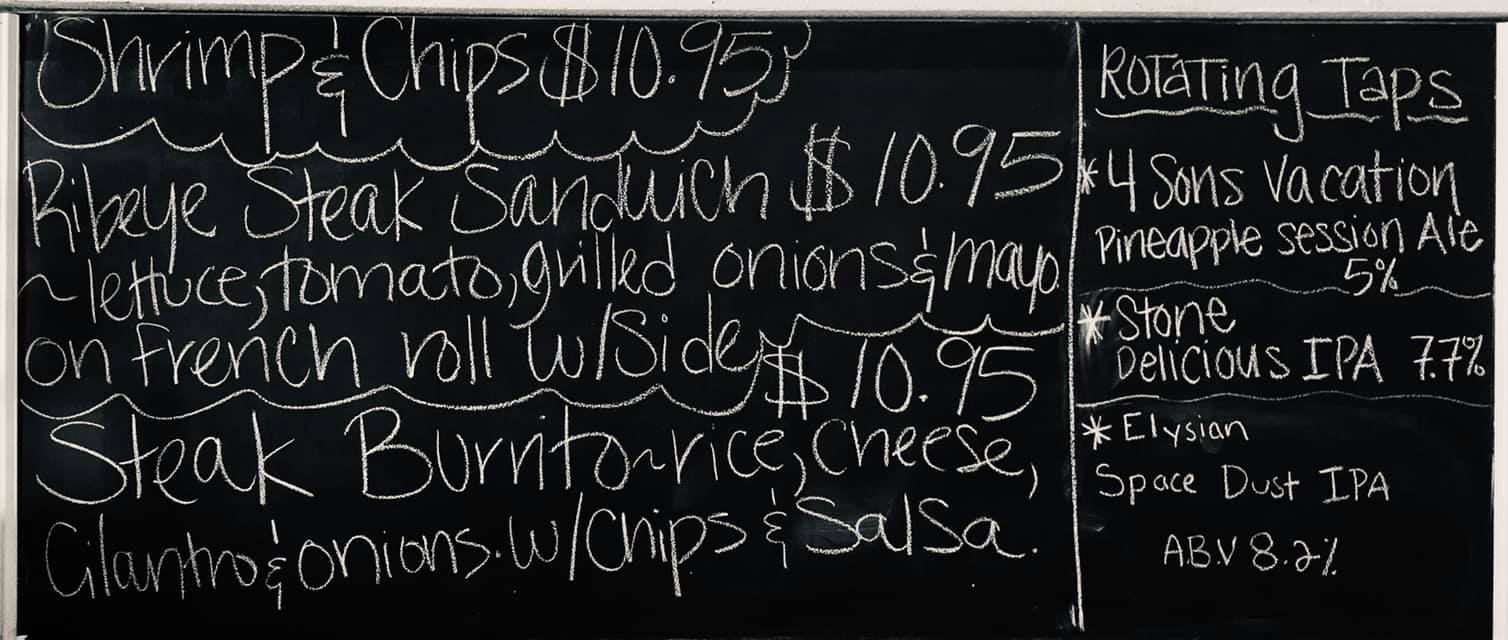 Shrimp & Chips $10.95
Ribeye Steak Sandwich $10.95
~lettuce, tomato, grilled onions & mayo
on french roll w/Side
$10.95
Steak Burrito~rice, Cheese,
Cilantro & onions. w/Chips & Salsa.
Rotating Taps
*4 Sons Vacation
Pineapple session Ale
5%
*Stone
Delicious IPA 7.7%
*Elysian
Space Dust IPA
A.B.V 8.2%